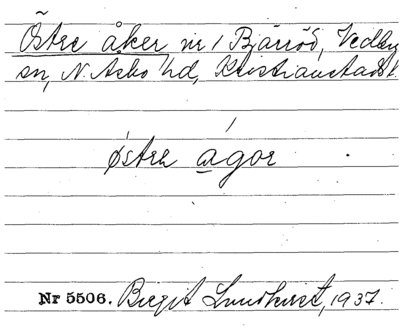 Östre åker nr 1 Bjärröd, Vedby
sn, N. Åsbo hd, Kristianstads l.
østrə ágor
Nr 5506. Birgit Lundkvist, 1937.